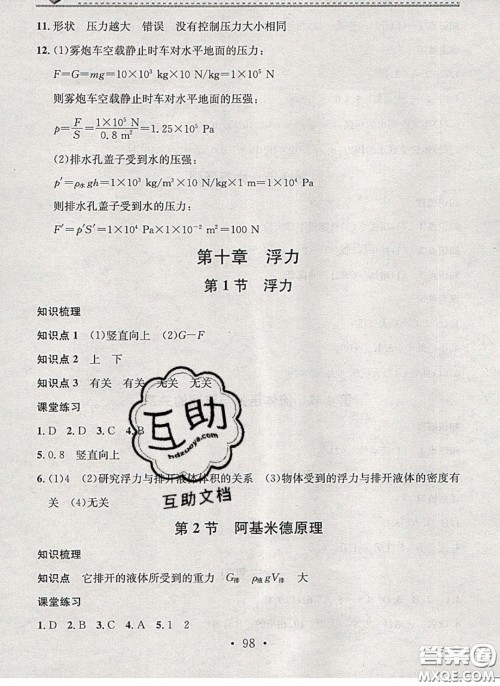 11. 形状　压力越大　错误　没有控制压力大小相同
12. (1)雾炮车空载静止时车对水平地面的压力:
F=G=mg=10×10³ kg×10 N/kg=1×10⁵ N
则雾炮车空载静止时车对水平地面的压强:
p=F/S=1×10⁵ N/0.8 m²=1.25×10⁵ Pa
(2)排水孔盖子受到水的压强:
p′=ρ水gh=1×10³ kg/m³×10 N/kg×1 m=1×10⁴ Pa
则排水孔盖子受到水的压力:
F′=p′S′=1×10⁴ Pa×1×10⁻² m²=100 N
第十章　浮力
第 1 节　浮力
知识梳理
知识点 1　(1)竖直向上　(2)G－F
知识点 2　上　下
知识点 3　有关　有关　无关　无关
课堂练习
1. D　2. D　3. C　4. B
5. 0.8　竖直向上
6. (1)4　(2)研究浮力与排开液体体积的关系　(3)物体受到的浮力与排开液体的密度有
关　(4)无关
互助
hdzuoye.com
互助文档
第 2 节　阿基米德原理
知识梳理
知识点　它排开的液体所受到的重力　G排　ρ液gV排　大
课堂练习
1. D　2. B　3. C　4. A　5. 1　2
· 98 ·
答案圈